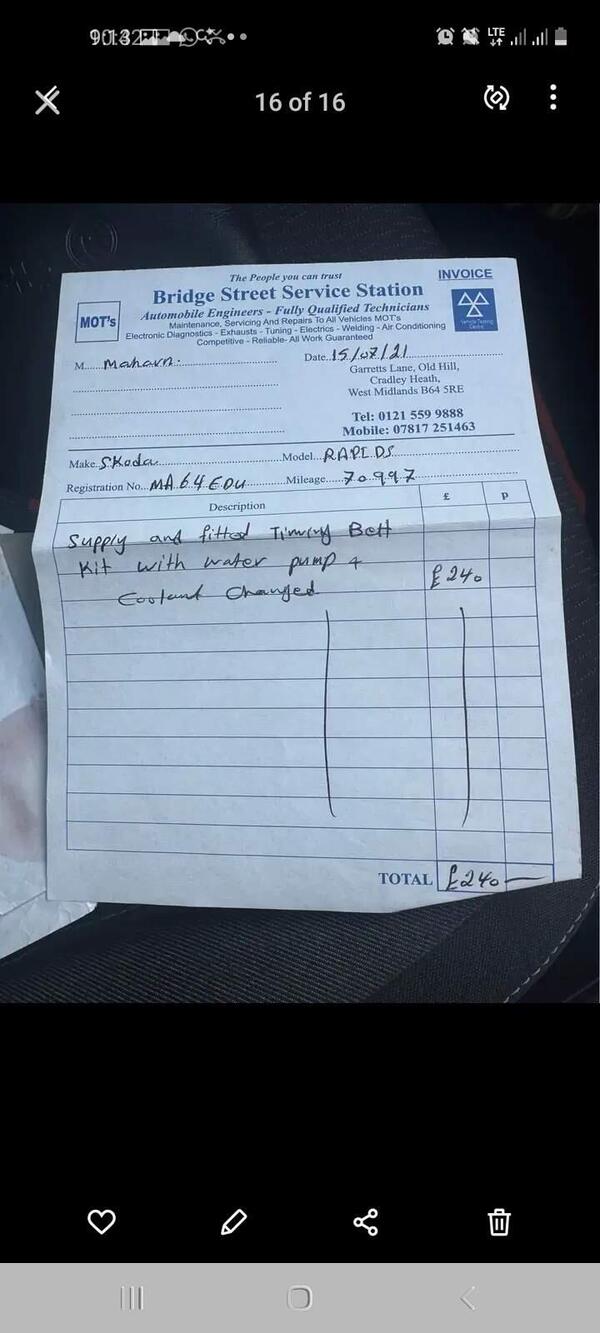 16 of 16
The People you can trust
INVOICE
Bridge Street Service Station
MOT's
Automobile Engineers - Fully Qualified Technicians
Maintenance, Servicing And Repairs To All Vehicles MOT's
Electronic Diagnostics - Exhausts - Tuning - Electrics - Welding - Air Conditioning
Competitive - Reliable- All Work Guaranteed
M Mahavn. Date 15/07/21
Garretts Lane, Old Hill,
Cradley Heath,
West Midlands B64 5RE
Tel: 0121 559 9888
Mobile: 07817 251463
Make Skoda Model RAPIDS
Registration No. MA64EDU Mileage 70997
Description £ p
Supply and fitted Timing Belt
Kit with water pump +
Coolant Changed £240
TOTAL £240